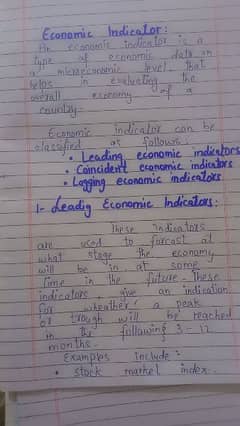 Economic Indicator:
An economic indicator is a
type of economic data on
a microeconomic level that
helps in evaluating the
overall economy of a
country.
Economic indicator can be
classified as follows:
• Leading economic indicators
• Coincident economic indicators
• Logging economic indicators
1- Leadig Economic Indicators:
These Indicators
are used to forcast at
what stage the economy
will be in at some
Time in the future. These
indicators give an indication
for wheather a peak
or trough will be reached
in the following 3-12
months.
Examples include:
• stock market index.